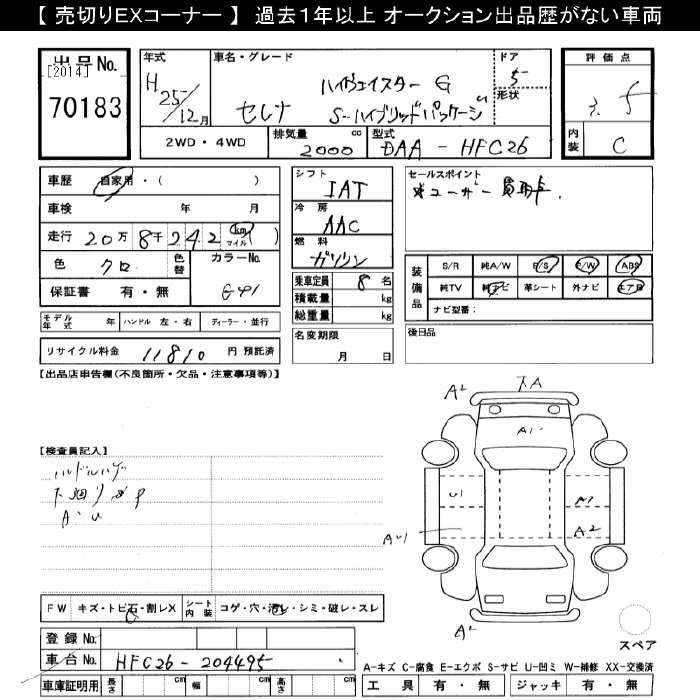 【 売切りEXコーナー 】 過去1年以上 オークション出品歴がない車両
出品No.
[2014]
70183
年式
H 25/12月
車名・グレード
ハイウェイスター G
セレナ S-ハイブリッドパッケージ
ドア
5
形状
評価点
3.5
内装
C
2WD・4WD
排気量 2000 cc
型式 DAA - HFC26
車歴 自家用・( )
車検 年 月
走行 20万8千242 (km マイル)
色 クロ 色替
カラーNo. G41
保証書 有・無
モデル年式 年 ハンドル 左・右 ディーラー・並行
リサイクル料金 11810 円 預託済
シフト IAT
冷房 AAC
燃料 ガソリン
乗車定員 8 名
積載量 kg
総重量 kg
名変期限
月 日
セールスポイント
装備品
S/R 純A/W P/S P/W ABS
純TV 純ナビ 革シート 外ナビ エアB
ナビ型番:
後日品
【出品店申告欄(不良箇所・欠品・注意事項等)】
【検査員記入】
A・U
A2 下A
A1
U1 A1
AU1 A2
A2
スペア
FW キズ・トビ石・割レX シート内装 コゲ・穴・汚レ・シミ・破レ・スレ
登録No.
車台No. HFC26-204495
車庫証明用 長さ cm 幅 cm 高さ cm
A-キズ C-腐食 E-エクボ S-サビ U-凹ミ W-補修 XX-交換済
工具 有・無 ジャッキ 有・無